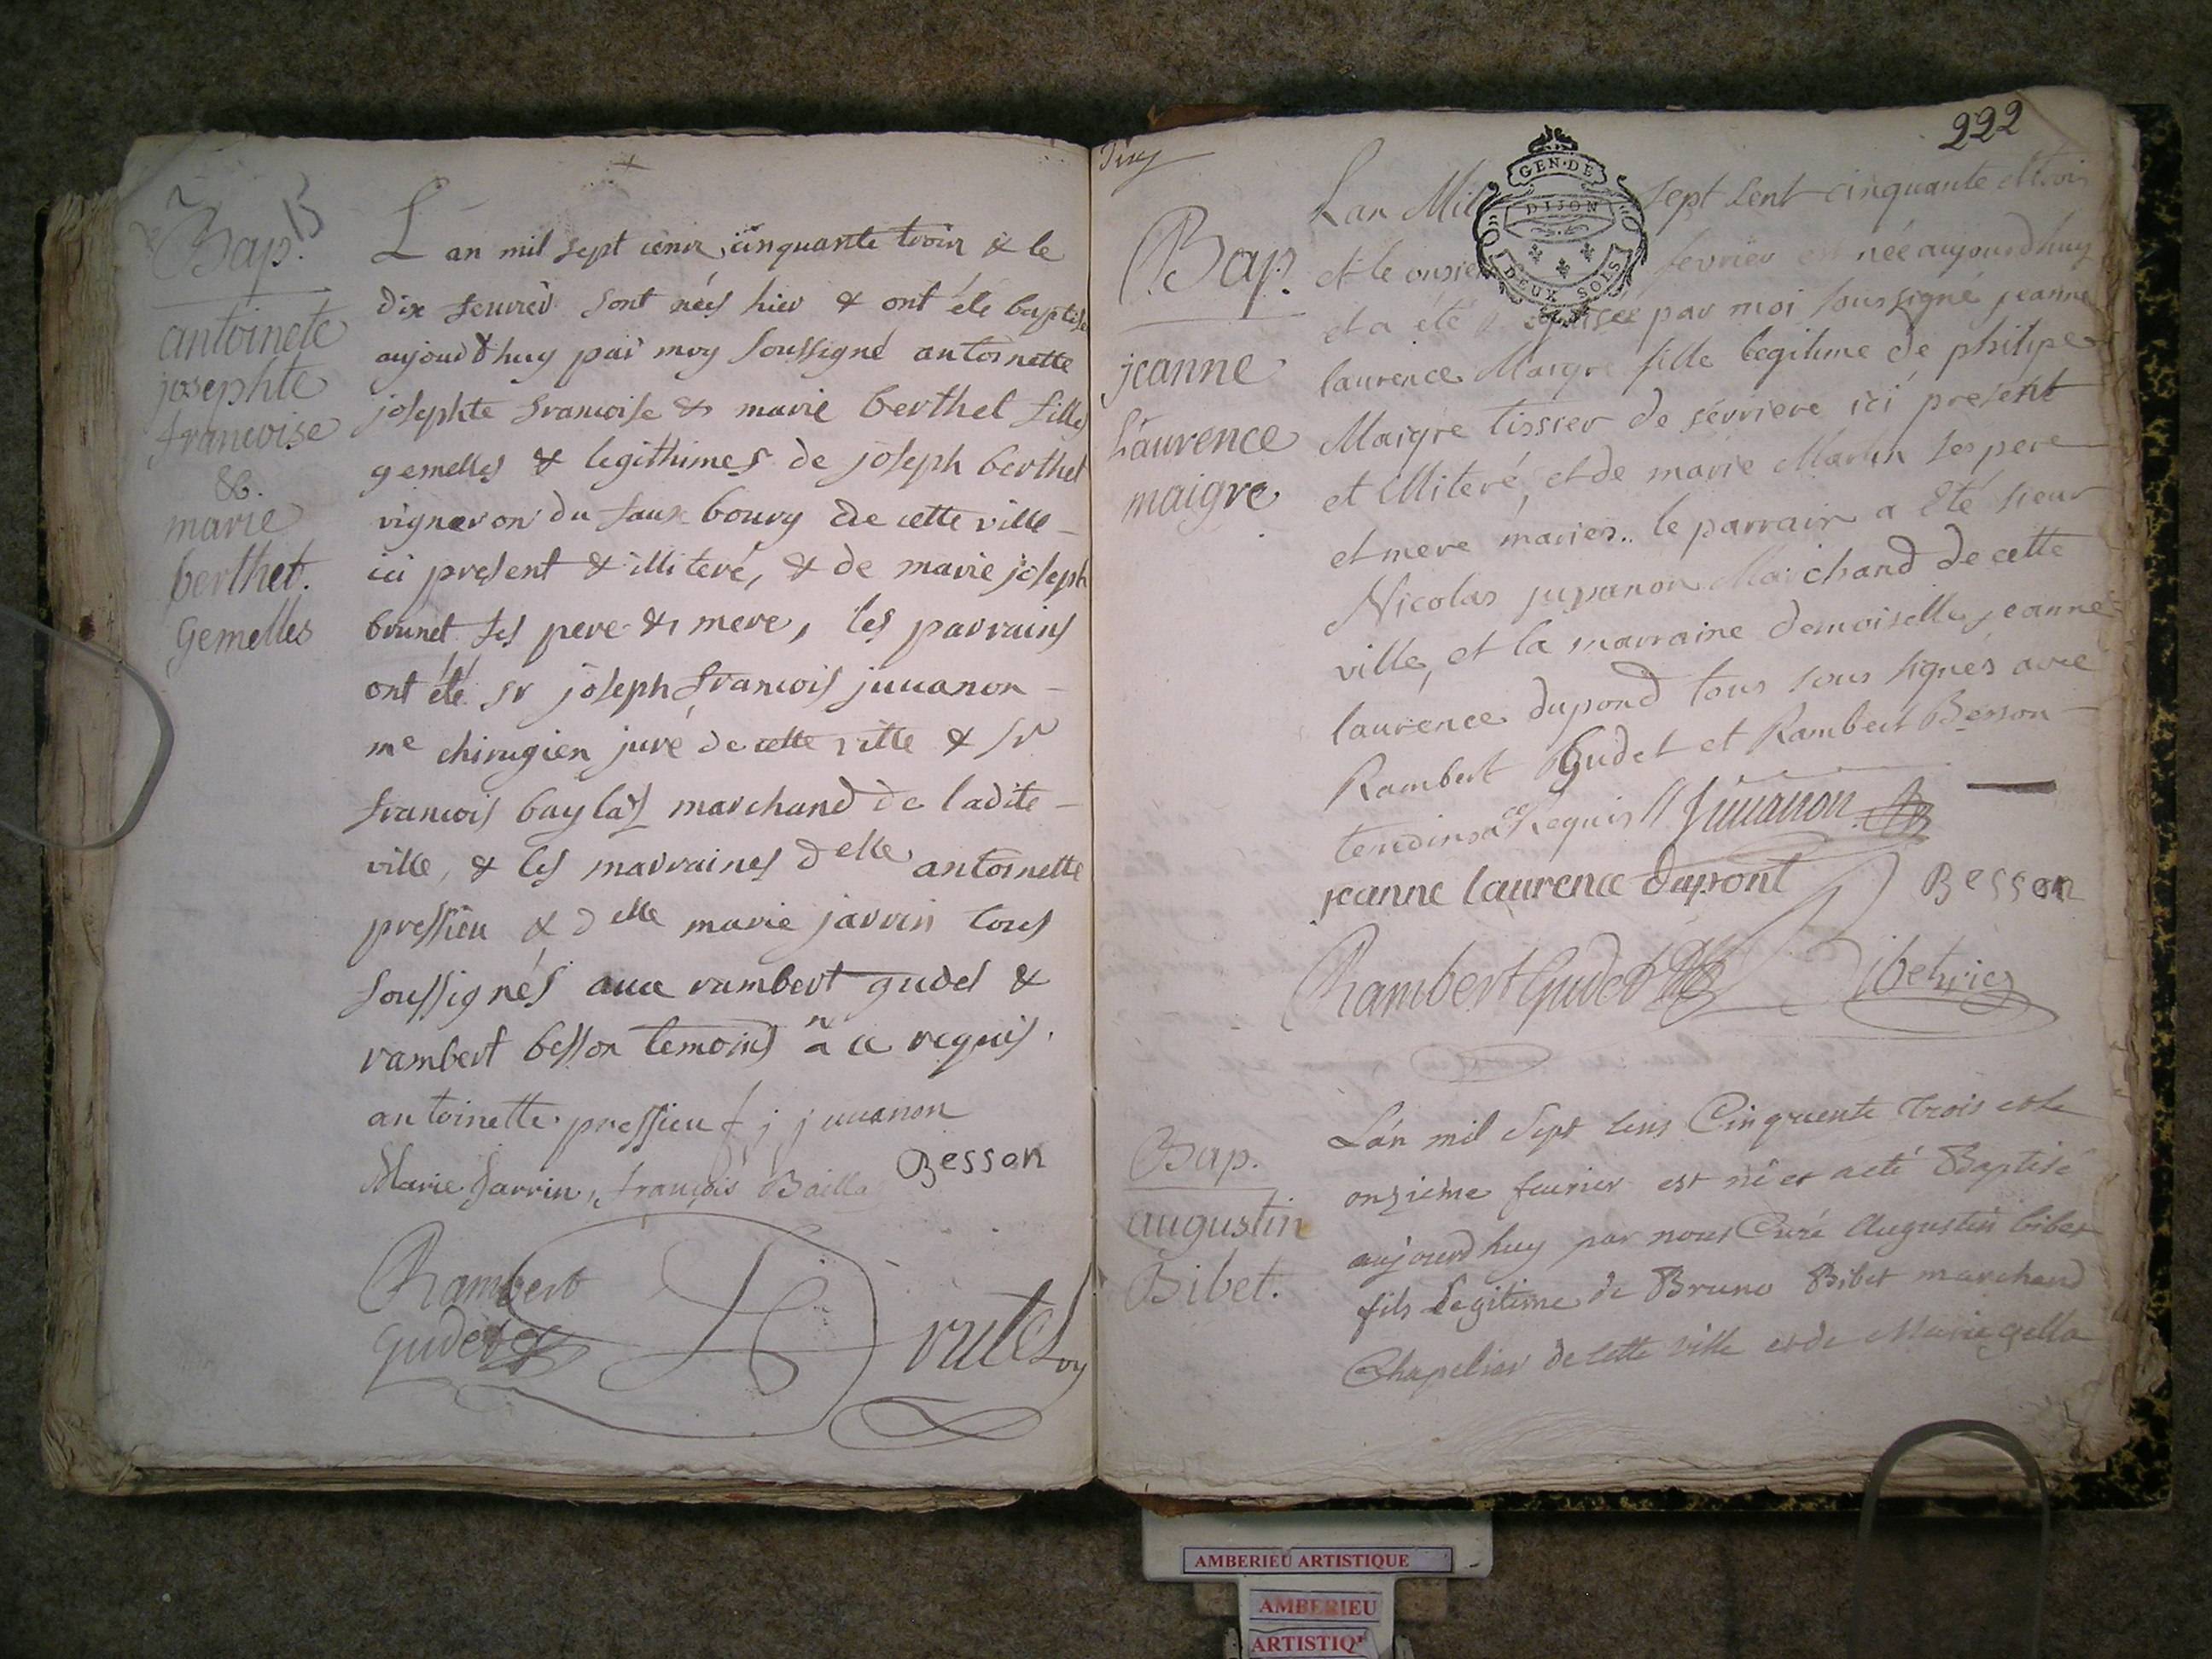 Bap.
13
antoinete
josephte
francoise
&.
marie
berthet.
Gemelles
L'an mil sept cens cinquante trois & le
dix feuvrier sont nées hier & ont été baptisées
aujourd'huy par moy soussigné antoinette
josephte francoise & marie berthet filles
gemelles & legithimes de joseph berthet
vigneron du faux bourg de cette ville
ici present & illiteré, & de marie joseph
brunet ses pere & mere, les parrains
ont été sr joseph francois juuanon
me chirugien juré de cette ville & sr
francois baylas marchand de ladite
ville, & les marraines delle antoinette
pressieu & delle marie jarrin tous
soussignés auec rambert gudet &
rambert besson temoins a ce requis.
antoinette pressieu f j juuanon
Marie Jarrin, françois Bailla Besson
Rambert
gudet
222
GEN. DE
DIJON
DEUX SOLS
Bap.
jeanne
Laurence
maigre
Lan Mil sept Cent cinquante et trois
et le onzieme fevrier est née aujourdhuy
et a été baptisée par moi sous signé jeanne
laurence Maigre fille legitime de philipe
Maigre tissier de sévriere ici present
et illiteré, et de marie Martin ses pere
et mere mariés.. le parrain a été sieur
Nicolas juvanon Marchand de cette
ville, et la marraine demoiselle jeanne
laurence dupond tous sous signés avec
Rambert Gudet et Rambert Besson
temoins a ce requis // Juuanon
jeanne laurence dupont Besson
Rambert Gudet
Bap.
augustin
Bibet.
L'an mil sept cens Cinquente trois et le
onzieme feurier est né et a eté Baptisé
aujourdhuy par nous Curé Augustin bibet
fils Legitime de Bruno Bibet marchand
Chapelier de cette ville et de Marie gella
AMBERIEU ARTISTIQUE
AMBERIEU
ARTISTIQ